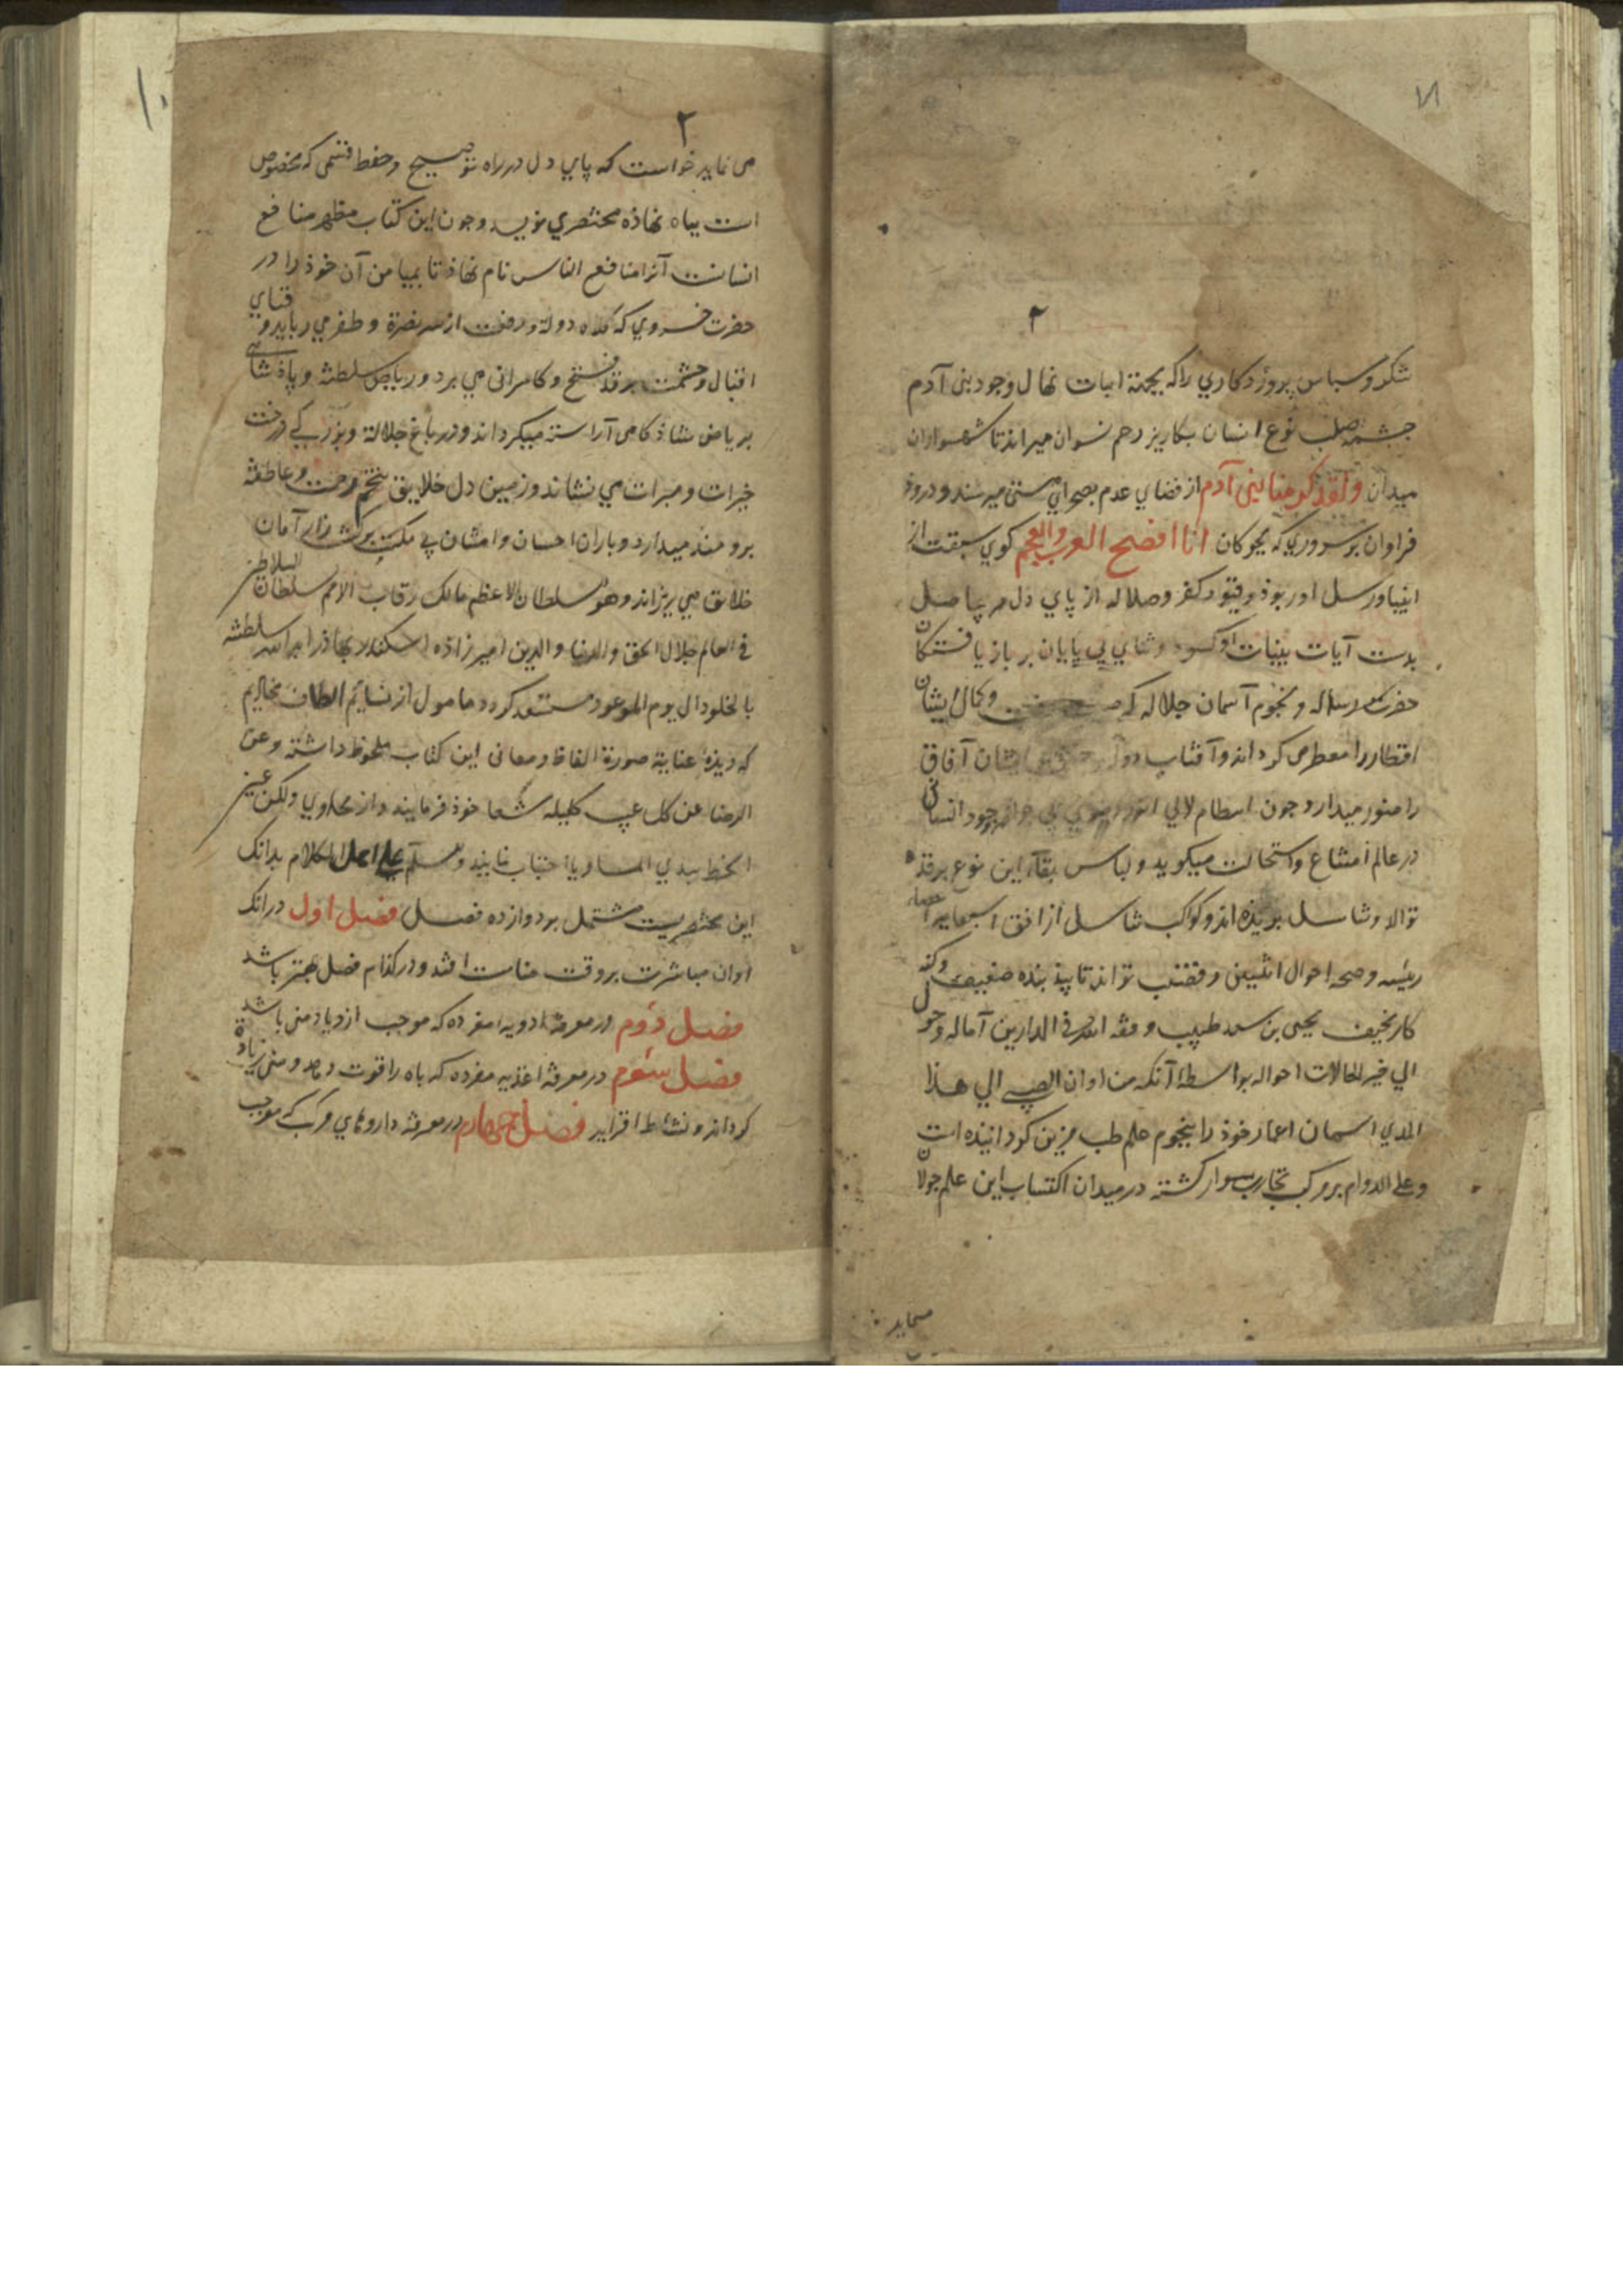 ۲
شکر و سباس پروردکاري را که بجهة اثبات نهال وجود بنی آدم
جشمه صلب نوع انسان بکاریز رحم نسوان میراند تا شهسواران
میدان ولقد کرمنا بنی آدم از فضاي عدم بصحراي هستی میرسند و درود
فراوان بر سروري که بجوکان انا افصح العرب والعجم کوي سبقت از
انبیا و رسل او ربوذ و قیود کفر و ضلاله از پاي دل هر بیاصل
بدست آیات بینات او کشود و ثناي بی پایان بر بازیافتکان
حضرت رساله و نجوم آسمان جلاله که وکمال ایشان
اقطار را معطر می کرداند و آفتاب ایشان آفاق
را منور میدارد جون انتظام لالی وجود انسانی
در عالم امتناع و استحالت میکوید و لباس بقآء این نوع بر قد
توالد و تناسل بریده اند و کوکب تناسل از افق
رئیسه و صحه احوال انثیین و قضیب تواند تابید بنده ضعیف وکنه
کار نحیف یحیی بن سعد طبیب وفقه الله فی الدارین آماله وحول
الی خیر الحالات احواله بواسطه آنکه من اوان الصبی الی هذا
المدي اسمان اعمار خوذ را بنجوم علم طب مزین کردانیده است
وعلی الدوام بر مرکب تجارب سوار کشته در میدان اکتساب این علم جولان
مینماید
۱۰
۲
می نماید خواست که پاي دل در راه توضیح و حفظ قسمی که مخصوص
است بباه نهاذه مختصري نویسد و جون این کتاب مظهر منافع
انسانست آنرا منافع الناس نام نهاذ تا بمیامن آن خوذ را در
حضرت خسروي که کلاه دولة و رفعت از سر نصرة و ظفر می رباید و قباي
اقبال و حشمت بر قد فتح و کامرانی می برد و ریاض سلطنة و پاذشاهی
بریاض شاذکامی آراسته میکرداند و در باغ جلالة و بزرکی درخت
خیرات و مبرات می نشاند و زمین دل خلایق بتخم مرحمت و عاطفة
برومند میدارد و باران احسان و امتنان بر کشت زار آمان
خلایق می ریزاند و هو سلطان الاعظم مالک رقاب الامم سلطان السلاطین
فی العالم جلال الحق والدنیا والدین امیرزاذه اسکندر بهاذر سلطنته
بالخلود الی یوم الموعود مستسعد کردد مامول از نسایم الطاف مخادیم
که دیذه عنایة صورة الفاظ و معانی این کتاب ملحوظ داشته وعین
الرضا عن کل عیب کلیلة شعار خوذ فرمایند و از فحاوي ولکن عین
السخط تبدي المساویا اجتناب نمایند و الکلام بدانک
این مختصریست مشتمل بر دوازده فصل فصل اول در انک
اوان مباشرت بر وقت مناسب افتد و در کذام فصل بهتر باشد
فصل دوم در معرفة ادویه مفرده که موجب ازدیاد منی باشد
فصل سوم در معرفة اغذیه مفرده که باه را قوت دهد و منی زیادة
کرداند و نشاط افزاید فصل جهارم در معرفة داروهاي مرکب که موجب